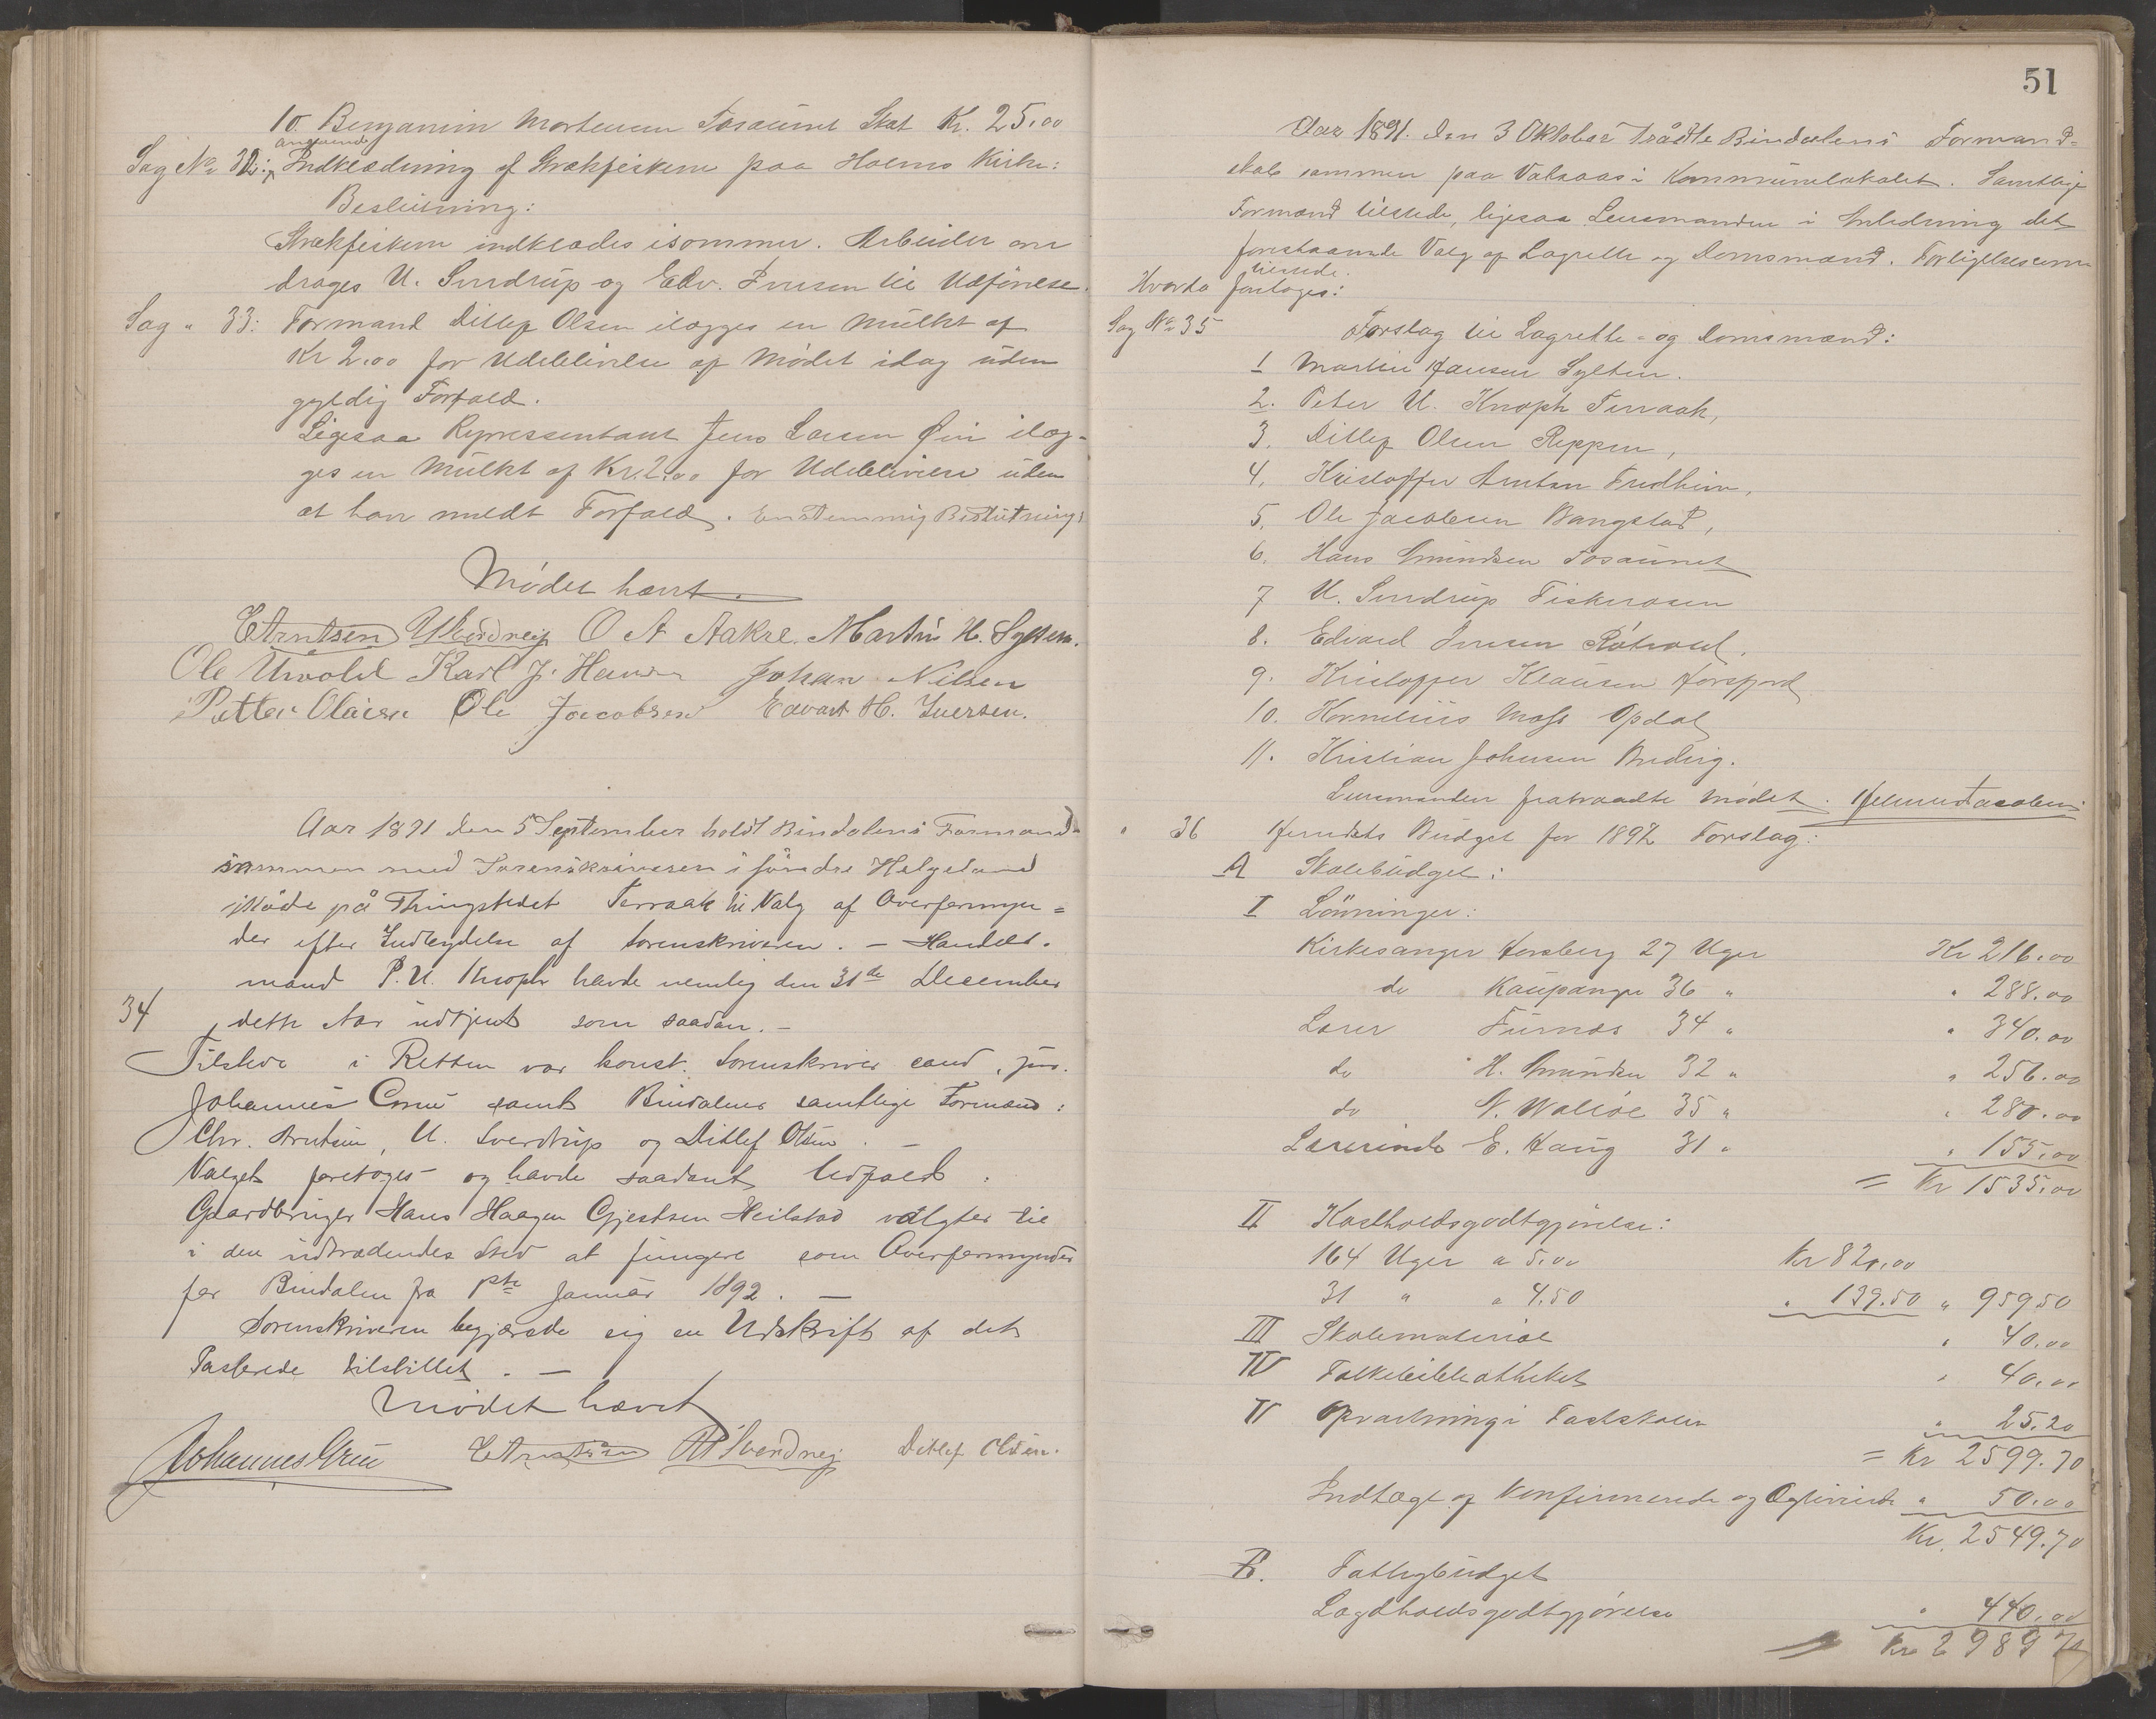 10. Benjamin Mortensen Tosaunet Skat Kr. 25.00
angaaende
Sag No 32: Indklædning af Trækfeskerne paa Holms Kirke:
Beslutning:
indklædes isommer. Arbeidet an
drages U. Sverdrup og Edv. Iversen til Udførelse.
Sag " 33: Formand Ditlef Olsen ilægges en Mulkt af
Kr 2.00 for Udeblivelse af Mødet idag uden
gyldig Forfald.
Ligesaa Repræsentant Jens Larsen Øien ilæg-
ges en Mulkt af Kr. 2.00 for Udeblivelse uden
at have meldt Forfald. Enstemmig Beslutning.
Mødet hævet.
C Arntsen U Sverdrup O A Aakre. Martin H. Sylten.
Ole Urvold Karl J. Hansen Johan Nilsen
Petter Olaisen Ole Jacobsen Edvart H. Iversen.
Aar 1891 den 5 September holdt Bindalens Formænd
sammen med Sorenskriveren i søndre Helgeland
Møde på Thingstedet Terraak til Valg af Overformyn=
der efter Indbydelse af Sorenskriveren. – Handels-
mand P. U. Knoph havde nemlig den 31de December
34 dette Aar udtjent som saadan. –
Tilstede i Retten var konst. Sorenskriver cand. jur.
Johannes samt Bindalens samtlige Formænd:
Chr. Arntsen, U. Sverdrup og Ditlef Olsen. –
Valget foretoges og havde saadant Udfald:
Gaardbruger Hans Haagen Gjertsen Heilstad valgtes til
i den udtrædendes Sted at fungere som Overformynder
for Bindalen fra 1ste Januar 1892. –
Sorenskriveren begjærede sig en Udskrift af det
Passerede tilstillet. –
Mødet hævet
Johannes C Arntsen U Sverdrup Ditlef Olsen.
51
Aar 1891. den 3 Oktober trådte Bindalens Formand-
skab sammen paa Valsaas i Kommunelokalet. Samtlige
Formænd tilstede, ligesaa Lensmanden i Anledning det
forestaaende Valg af Lagrette og Domsmænd. Forligelseskom
tilstede.
Hvorda foretoges:
Sag No 35 Forslag til Lagrette- og Domsmænd:
1 Martin Hansen Sylten.
2. Peter U. Knoph Terraak,
3. Ditlef Olsen Reppen,
4. Kristoffer Arntsen Fredheim,
5. Ole Jacobsen Bangstad,
6. Hans Amundsen Tosaunet
7 U. Sverdrup Fiskerosen
8. Edvard Iversen Røtvold.
9. Kristoffer Klausen Horsfjord
10. Kornelius Moss Opdal
11. Kristian Johnsen Buding.
Lensmanden fratraadte Mødet. Helmer Jacobsen
" 36 Herredets Budget for 1892 Forslag:
A Skolebudget:
I Lønninger:
Kirkesanger Forsberg 27 Uger Kr 216.00
do Kaupanger 36 " " 288.00
Lærer Furnes 34 " " 340.00
do H. Amundsen 32 " " 256.00
do N. Walløe 35 " " 280.00
Lærerinde E. Haug 31 " " 155.00
= Kr 1535.00
II Kostholdsgodtgjørelse:
164 Uger a 5.00 Kr 820.00
31 " a 4.50 " 139.50 " 959.50
III Skolemateriel " 40.00
IV Folkebibliotheket " 40.00
V Opvartning i Fastskolen " 25.20
= Kr 2599.70
Indtægt af Konfirmerede og Ægteviede " 50.00
Kr. 2549.70
B. Fattigbudget
Lægdholdsgodtgjørelse " 440.00
Kr 2989 70